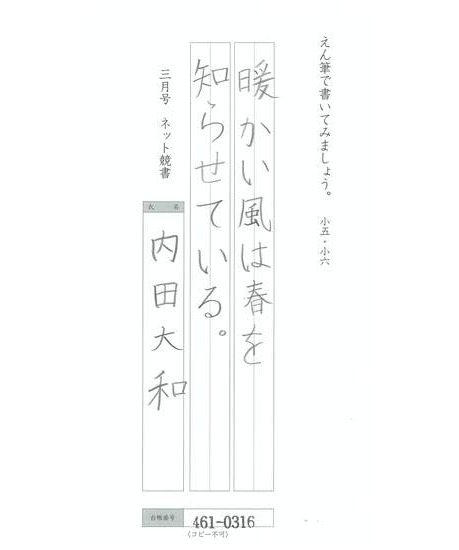 えん筆で書いてみましょう。 小五・小六
暖かい風は春を
知らせている。
三月号 ネット競書
氏名
内田大和
台帳番号 461-0316
(コピー不可)